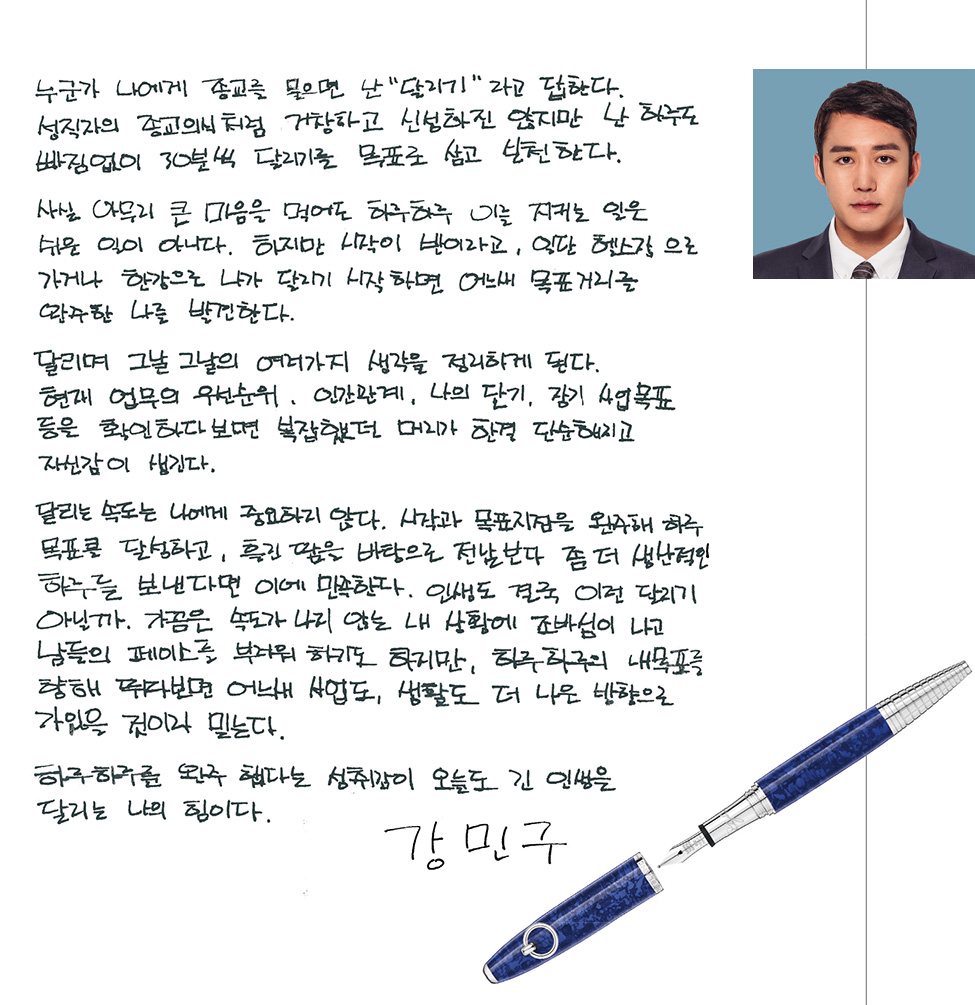 누군가 나에게 종교를 물으면 난 "달리기" 라고 답한다.
성직자의 종교의식처럼 거창하고 신실하진 않지만 난 하루도
빠짐없이 30분씩 달리기를 목표로 삼고 실천한다.
사실 아무리 큰 마음을 먹어도 하루하루 이를 지키는 일은
쉬운 일이 아니다. 하지만 시작이 반이라고, 일단 헬스장 으로
가거나 한강으로 나가 달리기 시작하면 어느새 목표거리를
완주한 나를 발견한다.
달리며 그날 그날의 여러가지 생각을 정리하게 된다.
현재 업무의 우선순위, 인간관계, 나의 단기, 장기 사업목표
등을 확인하다보면 복잡했던 머리가 한결 단순해지고
자신감이 생긴다.
달리는 속도는 나에게 중요하지 않다. 시작과 목표지점을 완주해 하루
목표를 달성하고, 흘린 땀을 바탕으로 전날보다 좀 더 생산적인
하루를 보낸다면 이에 만족한다. 인생도 결국 이런 달리기
아닐까. 가끔은 속도가 나지 않는 내 상황에 조바심이 나고
남들의 페이스를 부러워 하기도 하지만, 하루하루의 내목표를
향해 뛰다보면 어느새 사업도, 생활도 더 나은 방향으로
가있을 것이라 믿는다.
하루하루를 완주 했다는 성취감이 오늘도 긴 인생을
달리는 나의 힘이다.
강민구